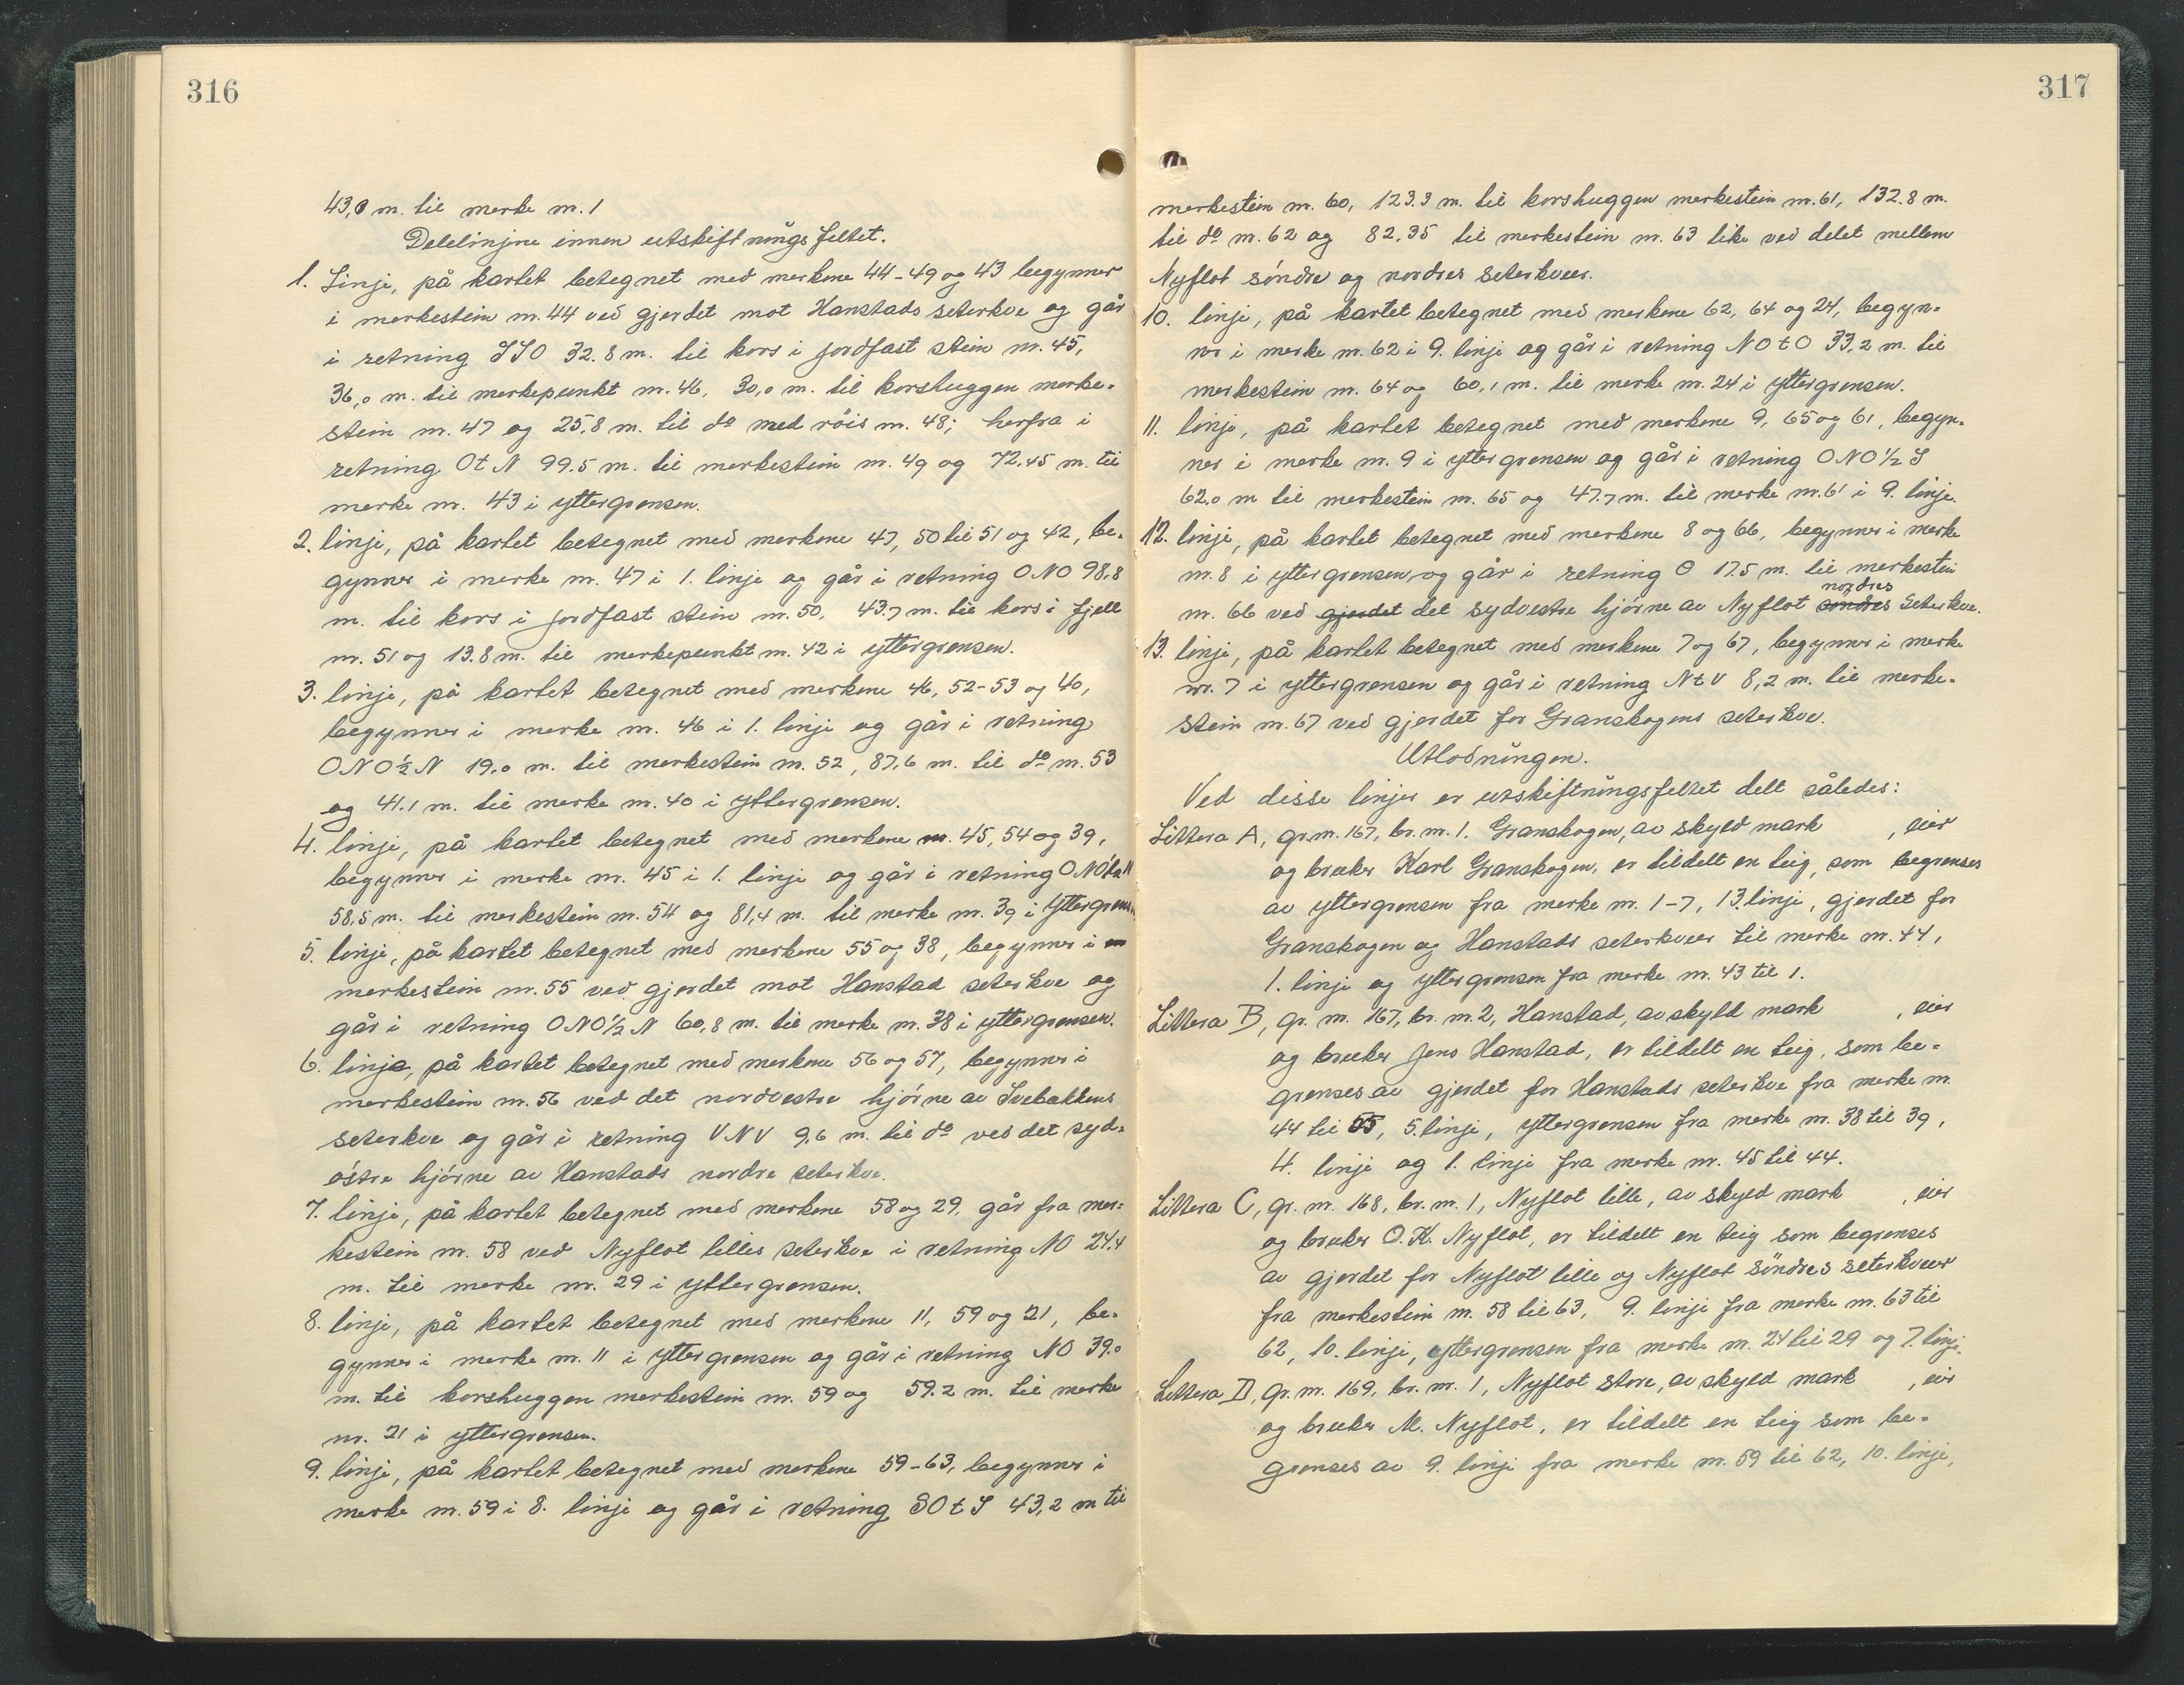 316
43,0 m. til merke nr. 1
Delelinjine innen utskiftningsfeltet.
1. Linje, på kartet betegnet med merkene 44-49 og 43 begynner
i merkestein nr. 44 ved gjerdet mot Hanstads seterkve og går
i retning SSO 32.8 m. til kors i jordfast stein nr. 45,
36,0 m. til merkepunkt nr. 46, 30,0 m. til korshuggen merke-
stein nr. 47 og 25,8 m. til do med röis nr. 48; herfra i
retning OtN 99.5 m. til merkestein nr. 49 og 72.45 m. til
merke nr. 43 i yttergrensen.
2. linje, på kartet betegnet med merkene 47, 50 til 51 og 42, be-
gynner i merke nr. 47 i 1. linje og går i retning ONO 98,8
m. til kors i jordfast stein nr. 50, 43.7 m. til kors i fjell
nr. 51 og 13.8 m. til merkepunkt nr. 42 i yttergrensen.
3. linje, på kartet betegnet med merkene 46, 52-53 og 40,
begynner i merke nr. 46 i 1. linje og går i retning
ONO½N 19,0 m. til merkestein nr. 52, 87,6 m. til do nr. 53
og 41.1 m. til merke nr. 40 i yttergrensen.
4. linje, på kartet betegnet med merkene nr. 45, 54 og 39,
begynner i merke nr. 45 i 1. linje og går i retning ONO½N
58,5 m. til merkestein nr. 54 og 81,4 m. til merke nr. 39 i yttergrensen.
5. linje, på kartet betegnet med merkene 55 og 38, begynner i
merkestein nr. 55 ved gjerdet mot Hanstad seterkve og
går i retning ONO½N 60,8 m. til merke nr. 38 i yttergrensen.
6. linje, på kartet betegnet med merkene 56 og 57, begynner i
merkestein nr. 56 ved det nordvestre hjörne av Svebakkens
seterkve og går i retning VNV 9,6 m. til do ved det syd-
östre hjörne av Hanstads nordre seterkve.
7. linje, på kartet betegnet med merkene 58 og 29, går fra mer-
kestein nr. 58 ved Nyflot lilles seterkve i retning NO 24,4
m. til merke nr. 29 i yttergrensen.
8. linje, på kartet betegnet med merkene 11, 59 og 21, be-
gynner i merke nr. 11 i yttergrensen og går i retning NO 39.0
m. til korshuggen merkestein nr. 59 og 59.2 m. til merke
nr. 21 i yttergrensen.
9. linje, på kartet betegnet med merkene 59-63, begynner i
merke nr. 59 i 8. linje og går i retning SOtS 43,2 m til
317
merkestein nr. 60, 123.3 m. til korshuggen merkestein nr. 61, 132.8 m.
til do nr. 62 og 82,35 til merkestein nr. 63 like ved delet mellem
Nyflot söndre og nordres seterkveer.
10. linje, på kartet betegnet med merkene 62, 64 og 24, begyn-
ner i merke nr. 62 i 9. linje og går i retning NOtO 33,2 m. til
merkestein nr. 64 og 60,1 m. til merke nr. 24 i yttergrensen.
11. linje, på kartet betegnet med merkene 9, 65 og 61, begyn-
ner i merke nr. 9 i yttergrensen og går i retning ONO½S
62,0 m til merkestein nr. 65 og 47.7 m. til merke nr. 61 i 9. linje.
12. linje, på kartet betegnet med merkene 8 og 66, begynner i merke
nr. 8 i yttergrensen og går i retning O 17.5 m. til merkestein
nordres
nr. 66 ved gjerdet det sydvestre hjörne av Nyflot söndres Seterkve.
13. linje, på kartet betegnet med merkene 7 og 67, begynner i merke
nr. 7 i yttergrensen og går i retning NtV 8,2 m. til merke-
stein nr. 67 ved gjerdet for Granskogens seterkve.
Utlodningen.
Ved disse linjer er utskiftningsfeltet delt således:
Littera A, gr. nr. 167, br. nr. 1. Granskogen, av skyld mark , eier
og bruker Karl Granskogen, er tildelt en teig, som begrenses
av yttergrensen fra merke nr. 1-7, 13. linje, gjerdet for
Granskogen og Hanstads seterkveer til merke nr. 44,
1. linje og yttergrensen fra merke nr. 43 til 1.
Littera B, gr. nr. 167, br. nr. 2, Hanstad, av skyld mark , eier
og bruker Jens Hanstad, er tildelt en teig, som be-
grenses av gjerdet for Hanstads seterkve fra merke nr.
44 til 55, 5. linje, yttergrensen fra merke nr. 38 til 39,
4. linje og 1. linje fra merke nr. 45 til 44.
Littera C, gr. nr. 168, br. nr. 1, Nyflot lille, av skyld mark , eier
og bruker O. K. Nyflot, er tildelt en teig som begrenses
av gjerdet for Nyflot lille og Nyflot söndres seterkveer
fra merkestein nr. 58 til 63, 9. linje fra merke nr. 63 til
62, 10. linje, yttergrensen fra merke nr. 24 til 29 og 7. linje.
Littera D, gr. nr. 169, br. nr. 1, Nyflot store, av skyld mark , eier
og bruker M. Nyflot, er tildelt en teig som be-
grenses av 9. linje fra merke nr. 59 til 62, 10. linje,